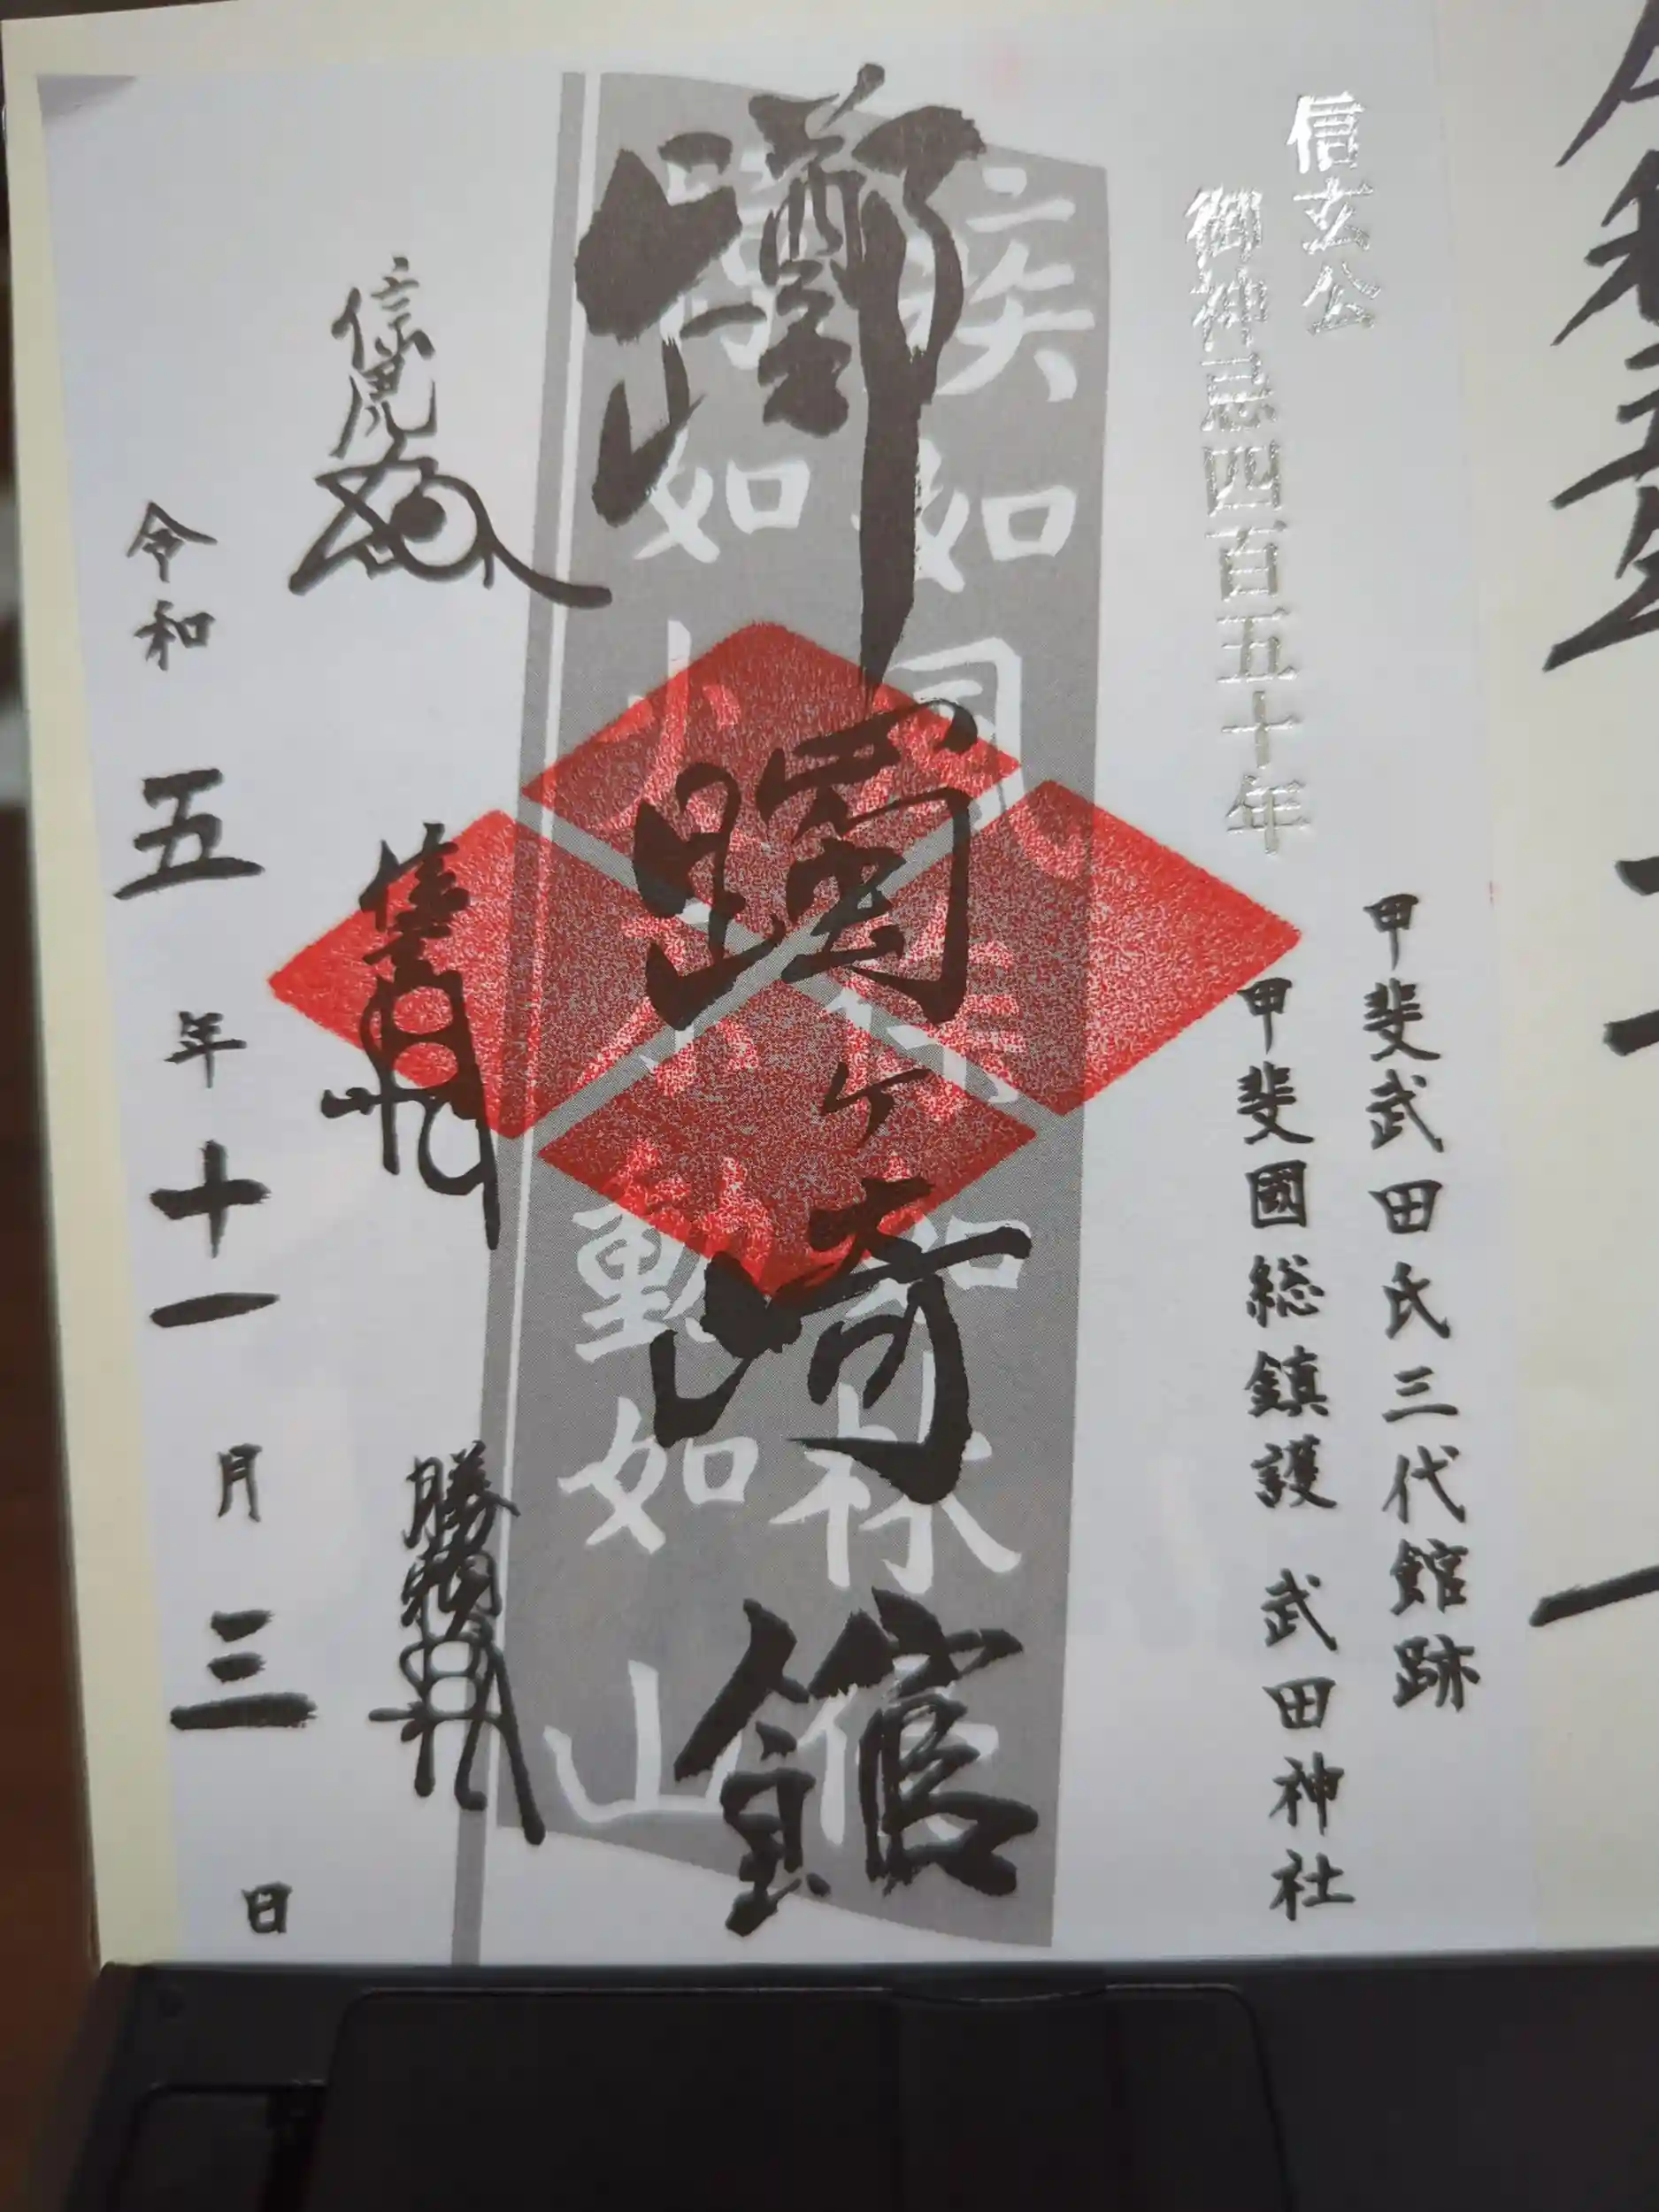 信玄公
御神忌四百五十年
甲斐武田氏三代館跡
甲斐國総鎮護 武田神社
躑躅ヶ崎館
疾如風徐如林侵
掠如火不動如山
信虎
信玄
勝頼
令和五年十一月三日